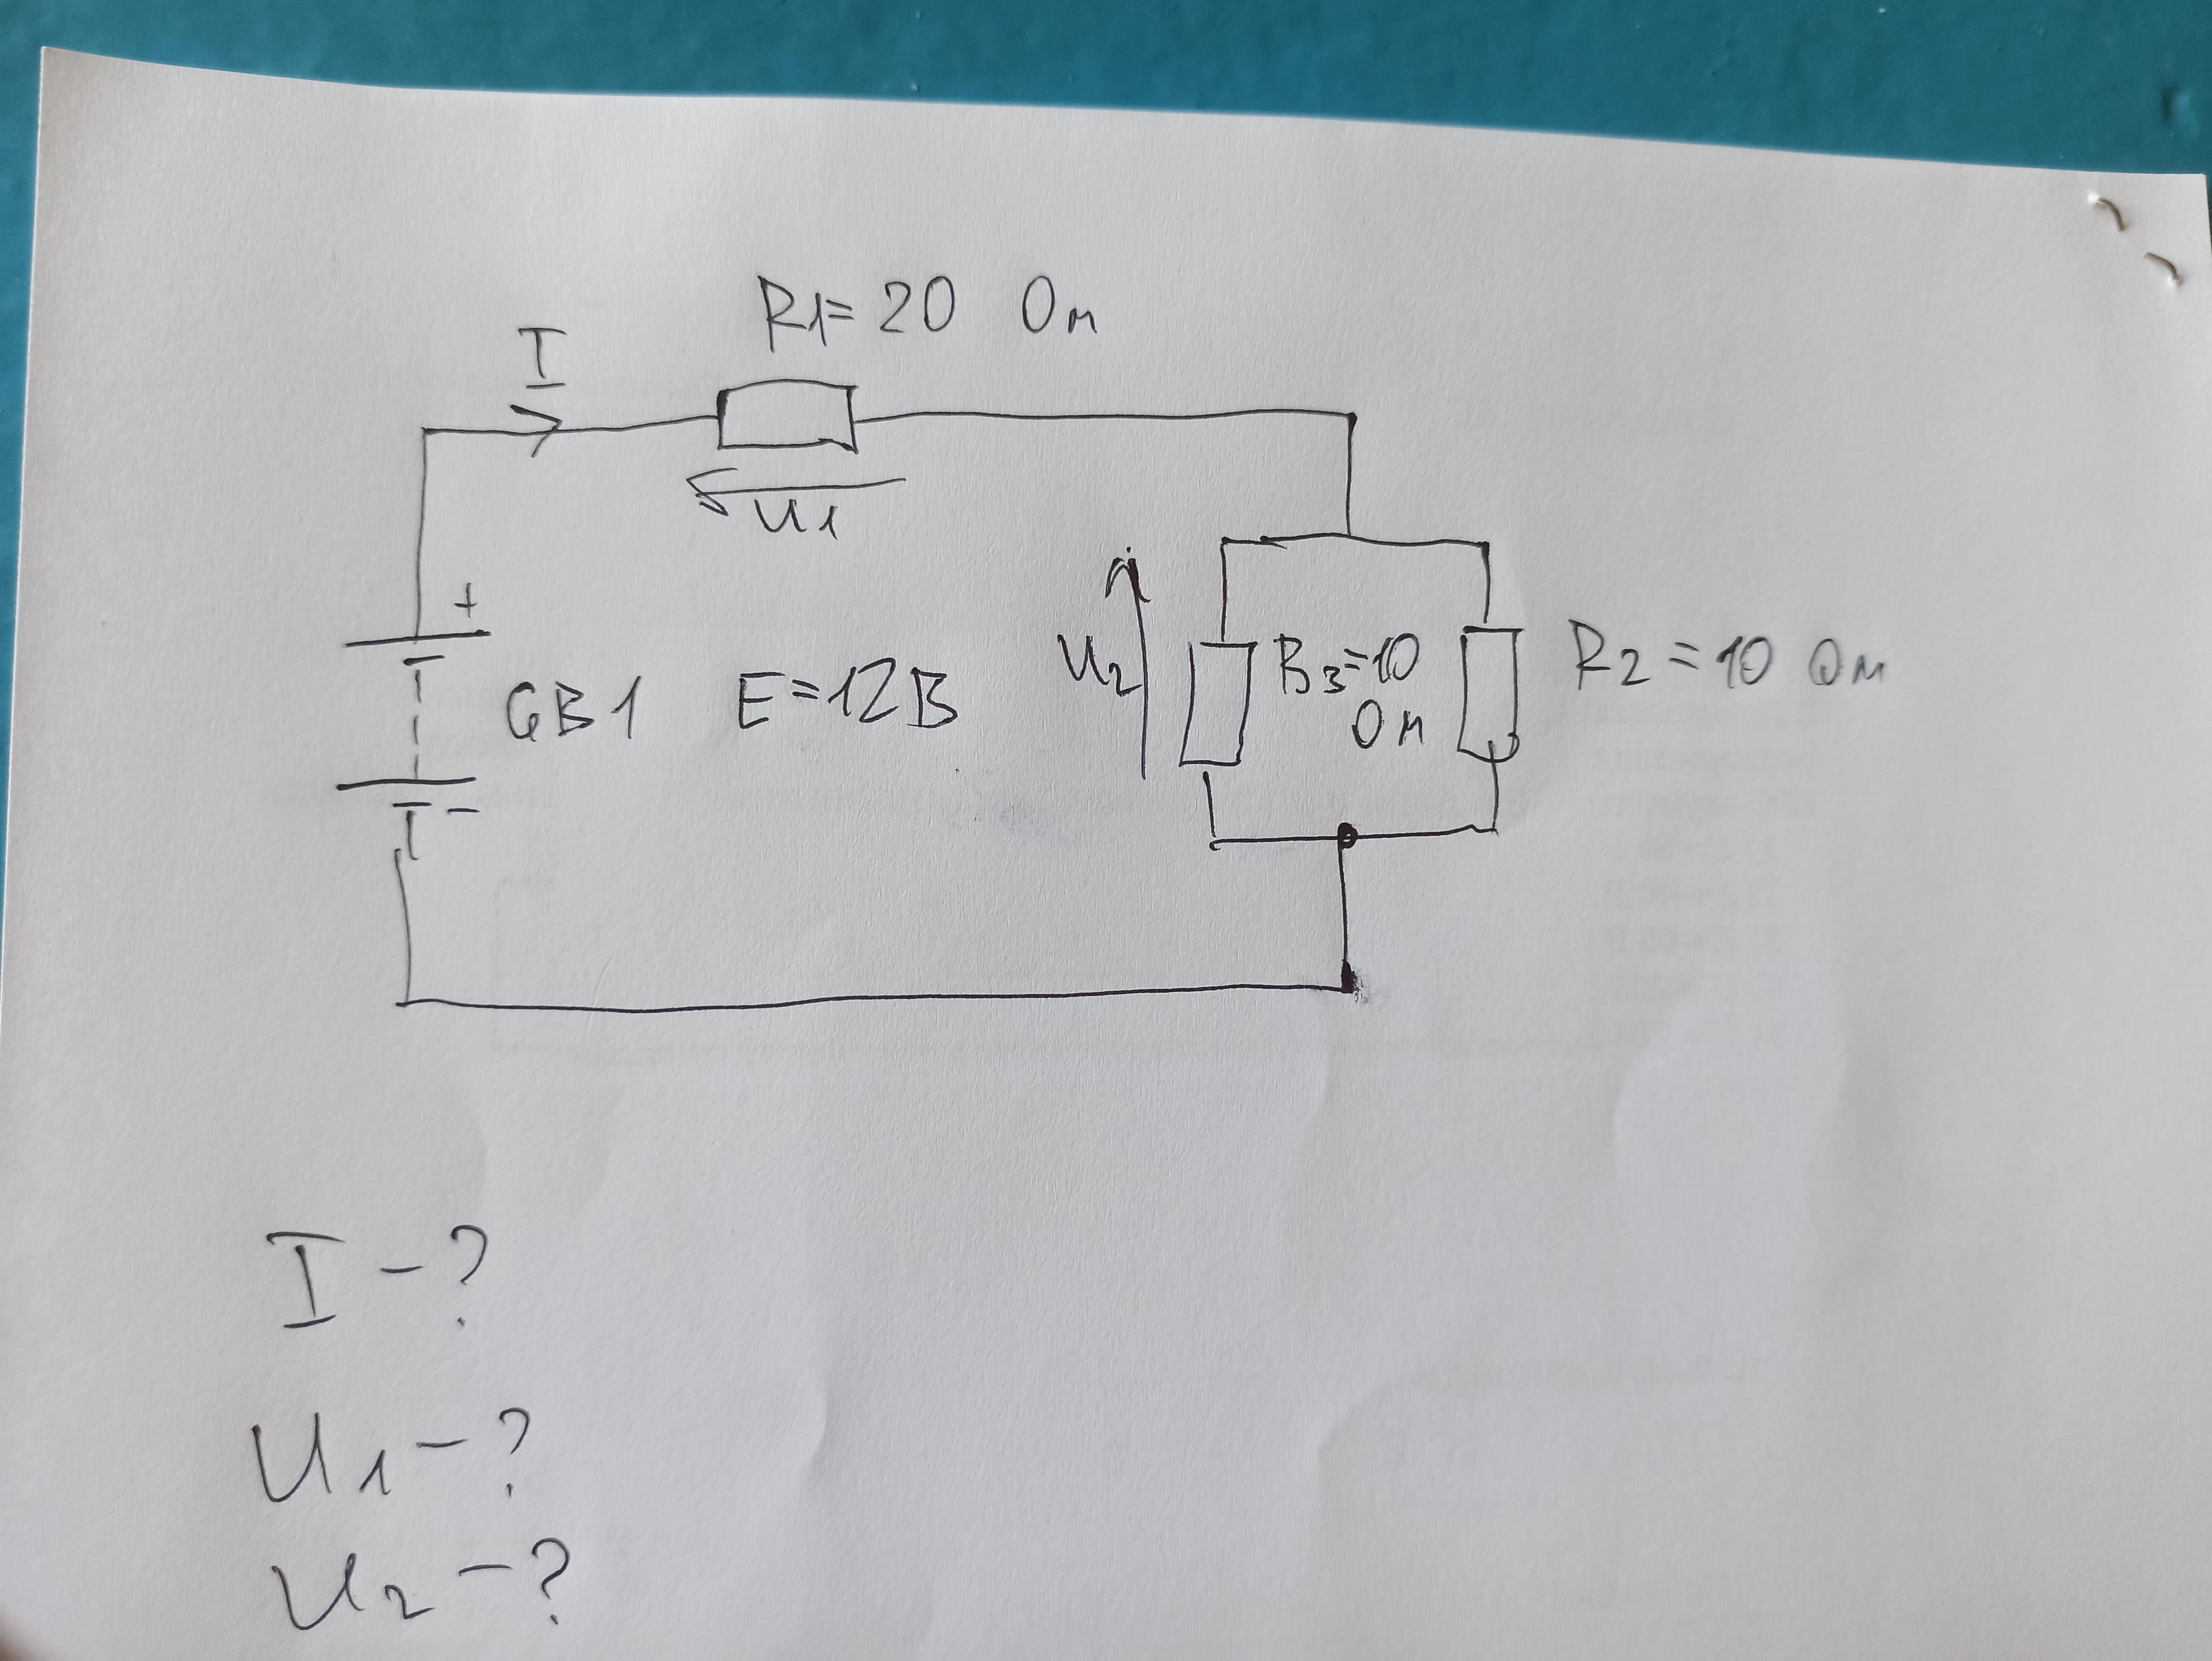 R1=20 Ом
I
U1
+
GB1 E=12В
U2
R3=10
Ом
R2=10 Ом
-
I-?
U1-?
U2-?